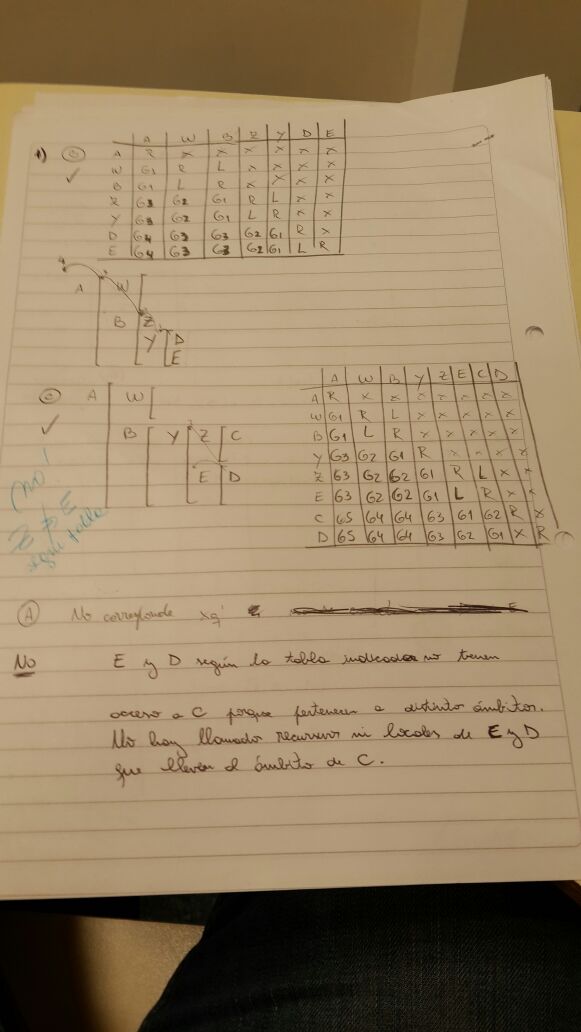 A W B Z Y D E
1) B A R x x x x x x
✓ W G1 R L x x x x
B G1 L R x x x x
Z G3 G2 G1 R L x x
Y G3 G2 G1 L R x x
D G4 G3 G3 G2 G1 R x
E G4 G3 G3 G2 G1 L R
A W
B Z
Y D
E
C A W
✓ B Y Z C
E D
no!
Z E
según tabla
A W B Y Z E C D
A R x x x x x x x
W G1 R L x x x x x
B G1 L R x x x x x
Y G3 G2 G1 R x x x x
Z G3 G2 G2 G1 R L x x
E G3 G2 G2 G1 L R x x
C G5 G4 G4 G3 G1 G2 R x
D G5 G4 G4 G3 G2 G1 x R
A No corresponde xq'
No E y D según la tabla indicada no tienen
acceso a C porque pertenecen a distinto ámbitos.
No hay llamados recursivos ni locales de E y D
que lleven al ámbito de C.